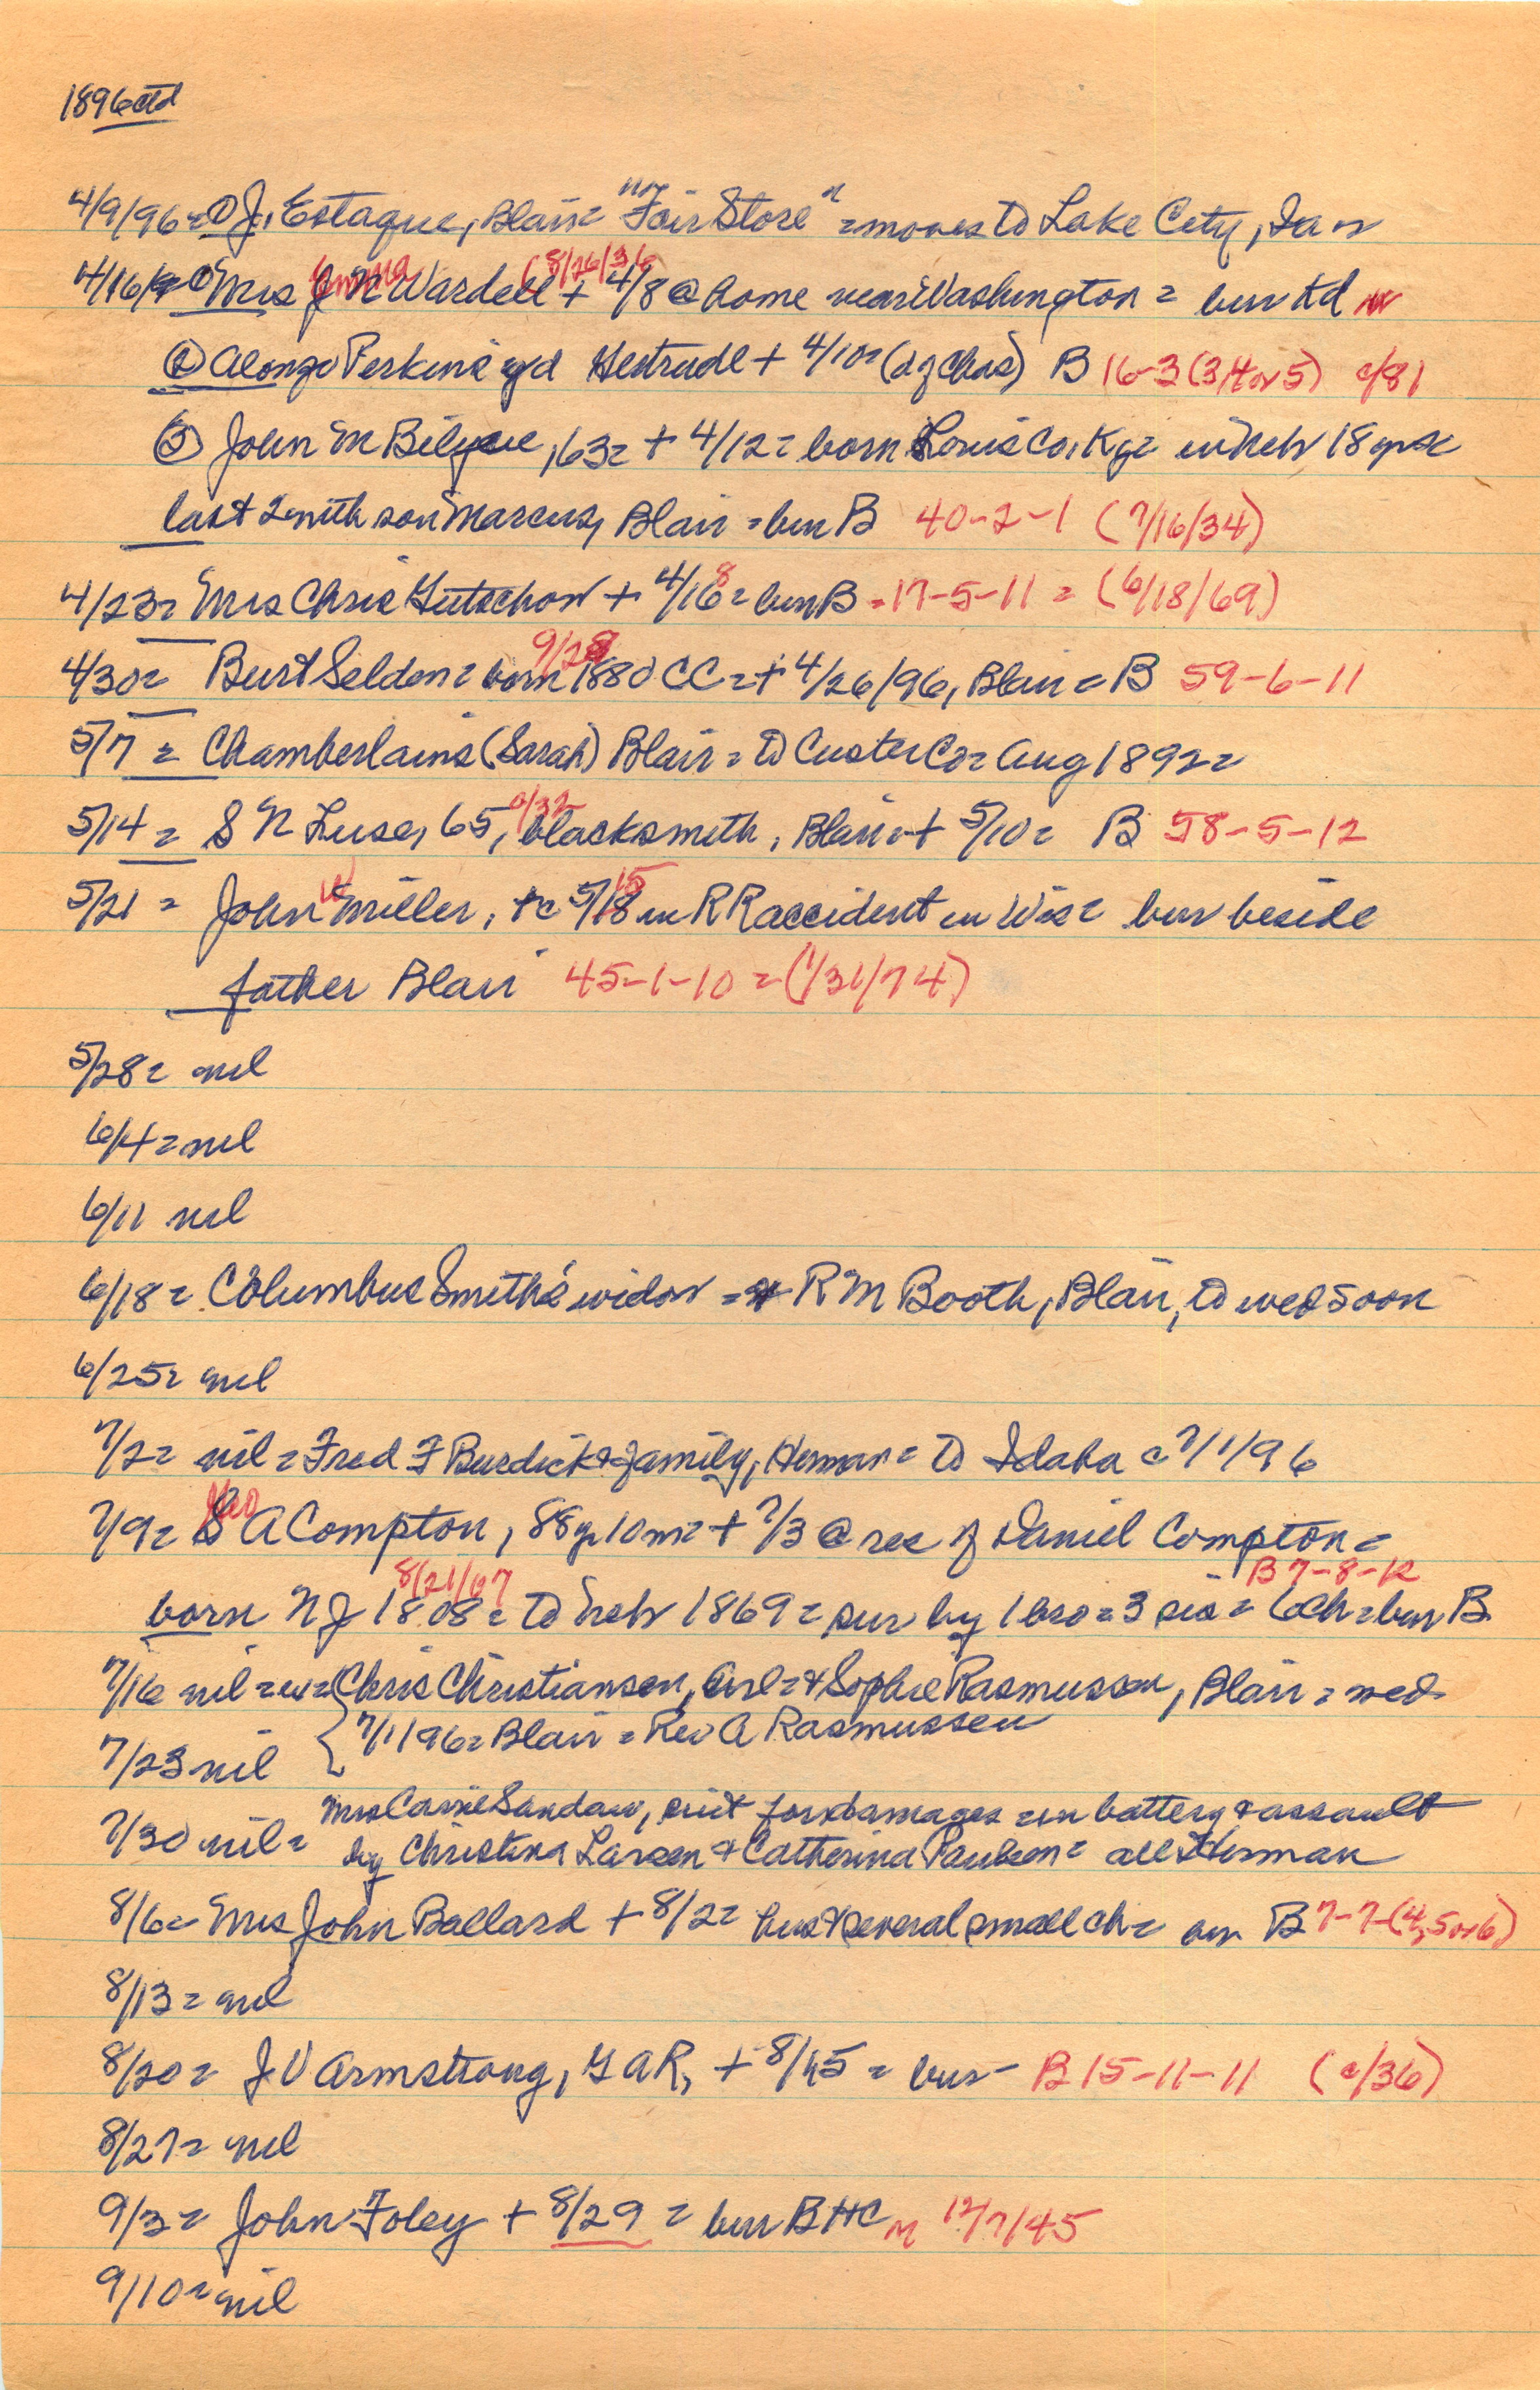 1896 ctd
4/9/96 = ① J. Estaque, Blair = "Fair Store" = moves to Lake City, Ia
4/16/ ① Mrs J N Wardell + 4/8 @ home near Washington = bur Kd
Emma (8/26/36
② Alonzo Perkins' gd Gertrude + 4/10 = (d of Chas) B 16-3 (3, 4 or 5) c/81
③ John M Bilyeue, 63 = + 4/12 = born Co, Ky = in Neb 18 yrs =
last 2 with son Marcus, Blair = bur B 40-2-1 (7/16/34)
4/23 = Mrs Chris Gutschow + 4/16 = bur B = 17-5-11 = (6/18/69)
8
4/30 = Burt Selden = born 1880 CC = + 4/26/96, Blair = B 59-6-11
9/28
5/7 = Chamberlains (Sarah) Blair = to Custer Co = Aug 1892 =
5/14 = S N Luse, 65, blacksmith, Blair = + 5/10 = B 58-5-12
c/32
5/21 = John Miller, + c 5/18 in RR accident in Wis = bur beside
W 15
father Blair 45-1-10 = (1/31/74)
5/28 = nil
6/4 = nil
6/11 nil
6/18 = Columbus Smith's widow = & R M Booth, Blair, to wed soon
6/25 = nil
7/2 = nil = Fred F Burdick & family, Herman = to Idaho c 7/1/96
7/9 = S A Compton, 88y 10m = + 7/3 @ res of Daniel Compton =
Geo
born NJ 1808 = to Neb 1869 = sur by 1 bro = 3 sis = 6 ch = bur B
8/21/07 B 7-8-12
7/16 nil = Chris Christiansen, Orl = & Sophie Rasmussen, Blair = wed
7/1/96 = Blair = Rev A Rasmussen
7/23 nil
7/30 nil = Mrs Carrie Sandau, suit for damages = in battery & assault
by Christina Larsen & Catherina Paulsen = all Herman
8/6 = Mrs John Ballard + 8/2 = hus & several small ch = B 7-7-(4, 5 or 6)
8/13 = nil
8/20 = J V Armstrong, GAR, + 8/15 = bur - B 15-11-11 (c/36)
8/27 = nil
9/3 = John Foley + 8/29 = bur BHC 12/7/45
9/10 = nil